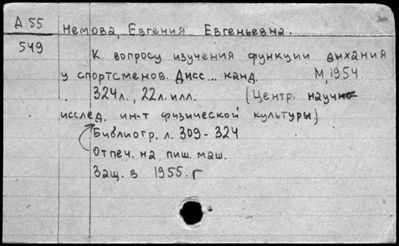 А 55 Немова, Евгения Евгеньевна.
549 К вопросу изучения функции дыхания
у спортсменов. Дисс... канд. М, 1954.
324 л., 22 л. илл. (Центр. научно
исслед. ин-т физической культуры)
Библиогр. л. 309-324
Отпеч. на пиш. маш.
Защ. в 1955. г